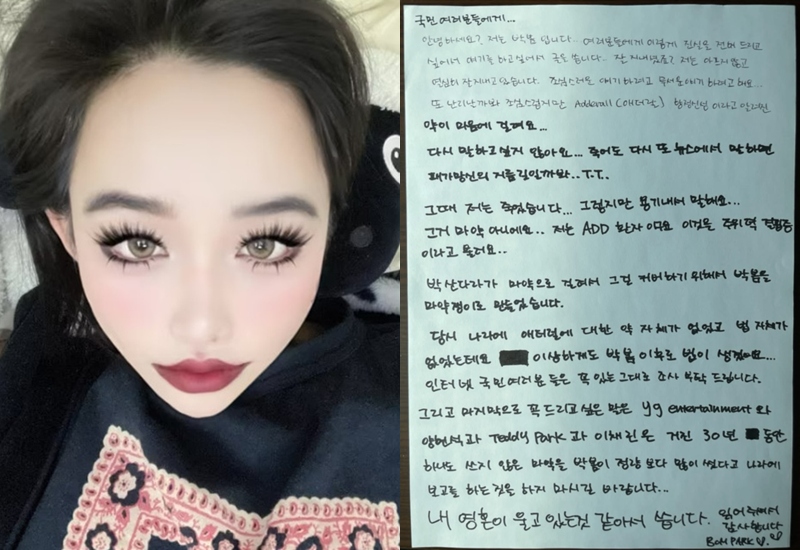 국민 여러분들에게...
안녕하세요? 저는 박봄 입니다.. 여러분들에게 이렇게 진실을 전해 드리고
싶어서 얘기를 하고싶어서 글을 씁니다. 잘 지내셨죠? 저는 아프지않고
열심히 잘지내고있습니다. 조심스러운 얘기 하려고 무서운얘기 하려고 해요..
또 난리날까봐 조심스럽지만 Adderall (애더럴) 향정신성 이라고 알려진
약이 마음에 걸려요...
다시 말하고싶지 않아요... 죽어도 다시 또 뉴스에서 말하면
패가망신의 지름길일까봐.. T.T.
그때 저는 죽었습니다... 그렇지만 용기내서 말해요...
그거 마약 아니에요.. 저는 ADD 환자 이며요 이것은 주위력 결핍증
이라고 불려요..
박산다라가 마약으로 걸려서 그걸 커버하기 위해서 박봄을
마약쟁이로 만들었습니다.
당시 나라에 애더럴에 대한 약 자체가 없었고 법 자체가
없었는데요 이상하게도 박봄 이후로 법이 생겼어요...
인터넷 국민여러분 들은 꼭 있는그대로 조사 부탁 드립니다.
그리고 마지막으로 꼭 드리고싶은 말은 yg entertainment 와
양현석과 Teddy Park 과 이채린은 거진 30년 동안
하나도 쓰지 않은 마약을 박봄이 정량 보다 많이 썼다고 나라에
보고를 하는것을 하지 마시길 바랍니다...
내 영혼이 울고 있는것 같아서 씁니다. 읽어 주셔서
감사합니다
BOM PARK